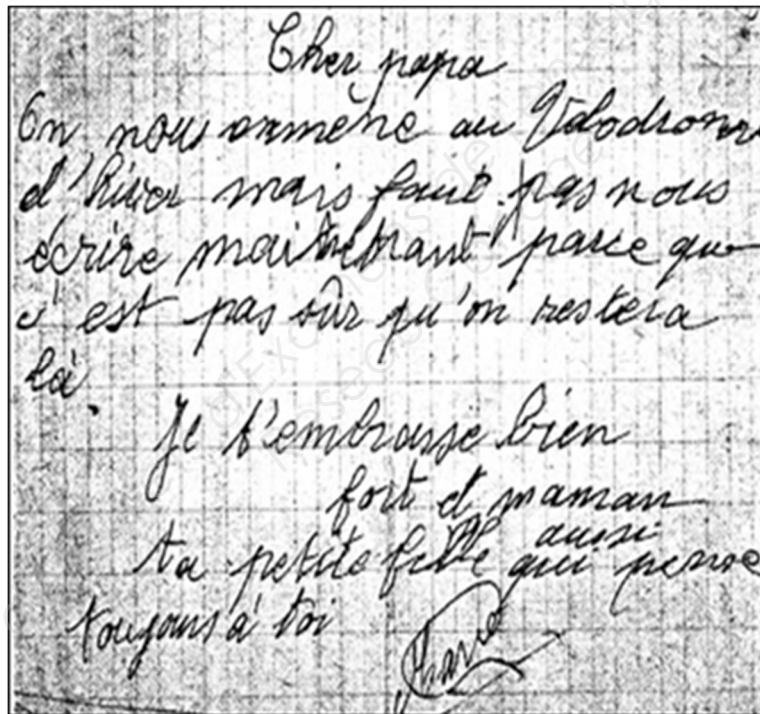 Cher papa
On nous emmène au Vélodrome
d'hiver mais faut pas nous
écrire maintenant parce que
c'est pas sûr qu'on restera
là.
Je t'embrasse bien
fort et maman
aussi
ta petite fille qui pense
toujours à toi
Marie